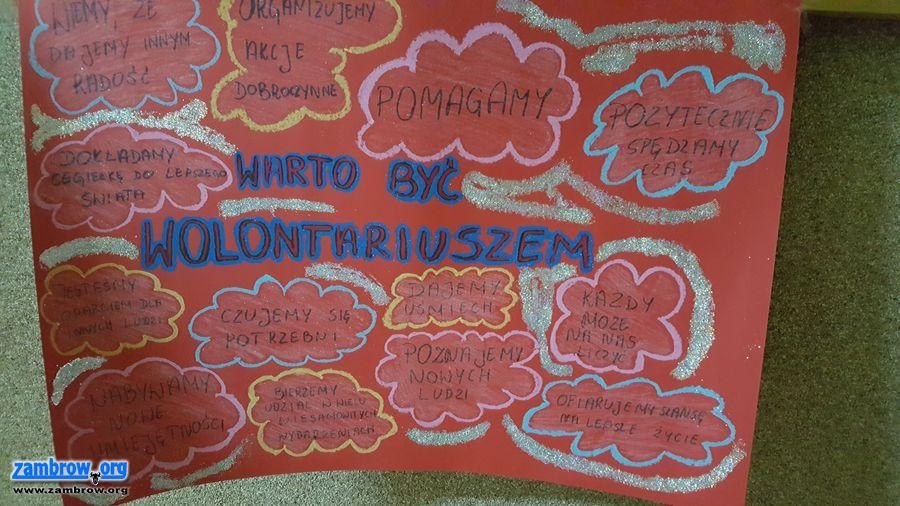 WIEMY, ŻE
DAJEMY INNYM
RADOŚĆ
ORGANIZUJEMY
AKCJE
DOBROCZYNNE
POMAGAMY
POŻYTECZNIE
SPĘDZAMY
CZAS
DOKŁADAMY
CEGIEŁKĘ DO LEPSZEGO
ŚWIATA
WARTO BYĆ
WOLONTARIUSZEM
JESTEŚMY
OPARCIEM DLA
INNYCH LUDZI
CZUJEMY SIĘ
POTRZEBNI
DAJEMY
UŚMIECH
KAŻDY
MOŻE
NA NAS
LICZYĆ
NABYWAMY
NOWE
UMIEJĘTNOŚCI
BIERZEMY
UDZIAŁ W WIELU
NIESAMOWITYCH
WYDARZENIACH
POZNAJEMY
NOWYCH
LUDZI
OFIARUJEMY SZANSĘ
NA LEPSZE ŻYCIE
zambrow.org
www.zambrow.org